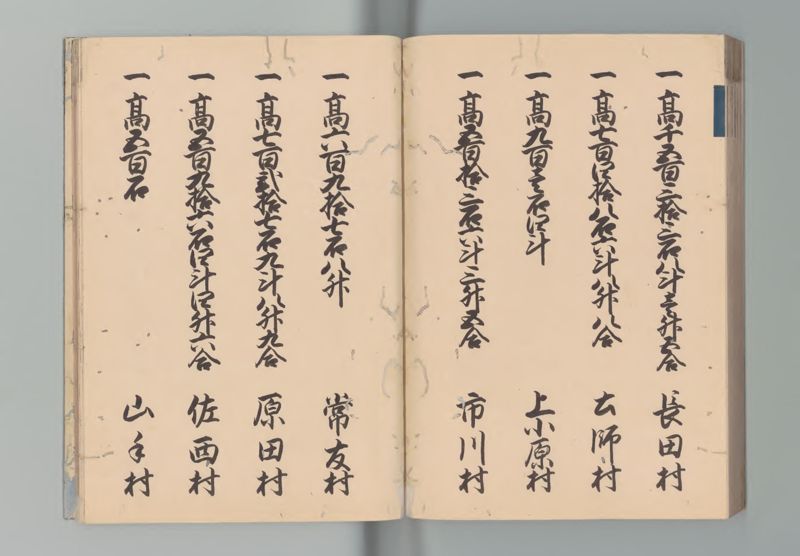 一高千五百二拾二石八斗壱升五合 長田村
一高七百四拾八石六斗八升八合 土師村
一高九百壱石四斗 上小原村
一高五百拾二石六斗二升五合 市川村
一高六百九拾七石八升 常友村
一高七百弐拾七石九斗八升九合 原田村
一高五百九拾六石四斗四升六合 佐西村
一高五百石 山手村